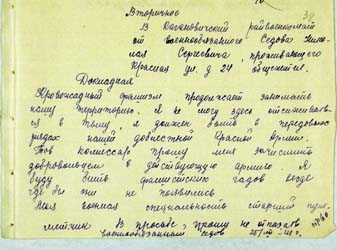 Вторичное
39
В Догановический райвоенкомат
от военнообязанного Седова Нико-
лая Сергеевича, проживающего
Красная ул. д 24 общежит.
Докладная
Кровожадный фашизм продолжает занимать
нашу территорию. Я не могу здесь отсиживать
ся в тылу я должен быть в передовых
рядах нашей доблестной Красной Армии.
Тов комиссар прошу меня зачислить
добровольцем в действующую армию Я
буду бить фашистских гадов везде
где бы они не появлялись
Моя военная специальность старший пуле-
метчик В просьбе, прошу не отказать
военнообязанный Седов